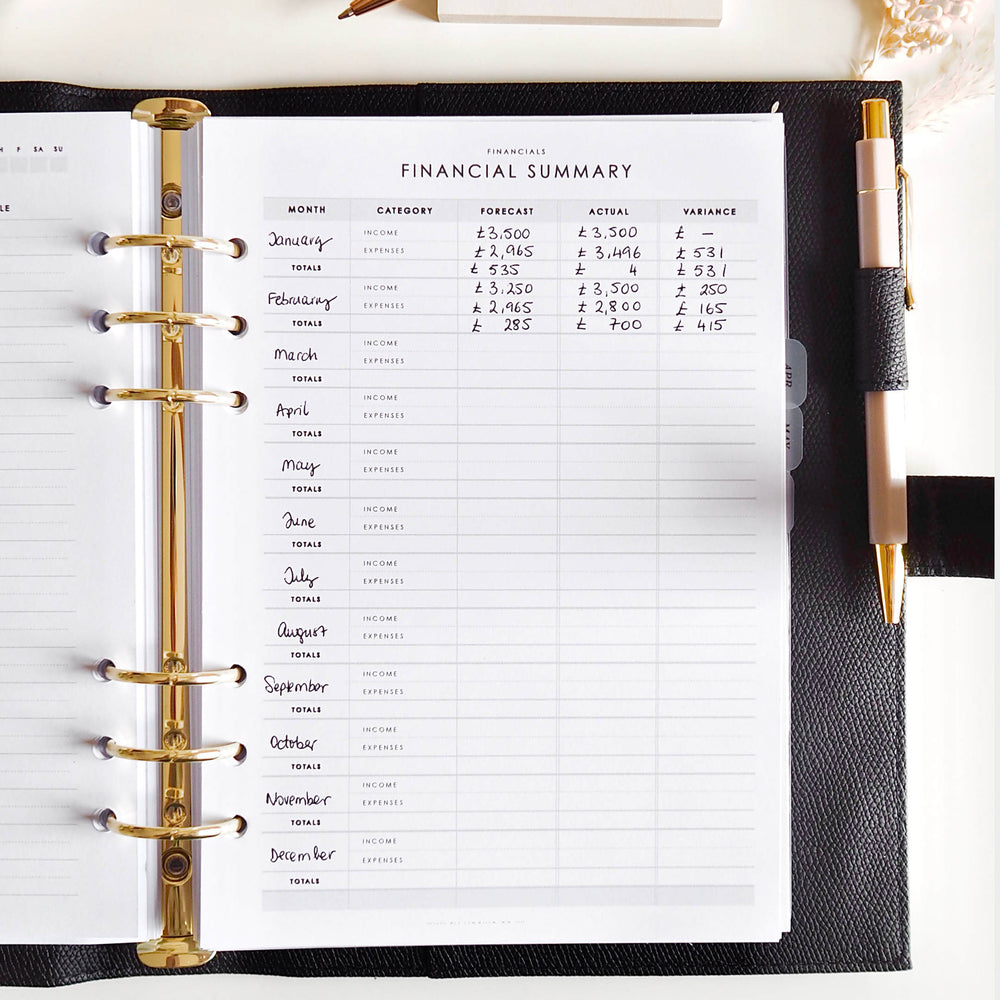 H F SA SU
LE
FINANCIALS
FINANCIAL SUMMARY
MONTH CATEGORY FORECAST ACTUAL VARIANCE
January INCOME £3,500 £3,500 £ –
EXPENSES £2,965 £3,496 £531
TOTALS £ 535 £ 4 £531
February INCOME £3,250 £3,500 £ 250
EXPENSES £2,965 £2,800 £ 165
TOTALS £ 285 £ 700 £ 415
March INCOME
EXPENSES
TOTALS
April INCOME
EXPENSES
TOTALS
May INCOME
EXPENSES
TOTALS
June INCOME
EXPENSES
TOTALS
July INCOME
EXPENSES
TOTALS
August INCOME
EXPENSES
TOTALS
September INCOME
EXPENSES
TOTALS
October INCOME
EXPENSES
TOTALS
November INCOME
EXPENSES
TOTALS
December INCOME
EXPENSES
TOTALS
APR
MAY